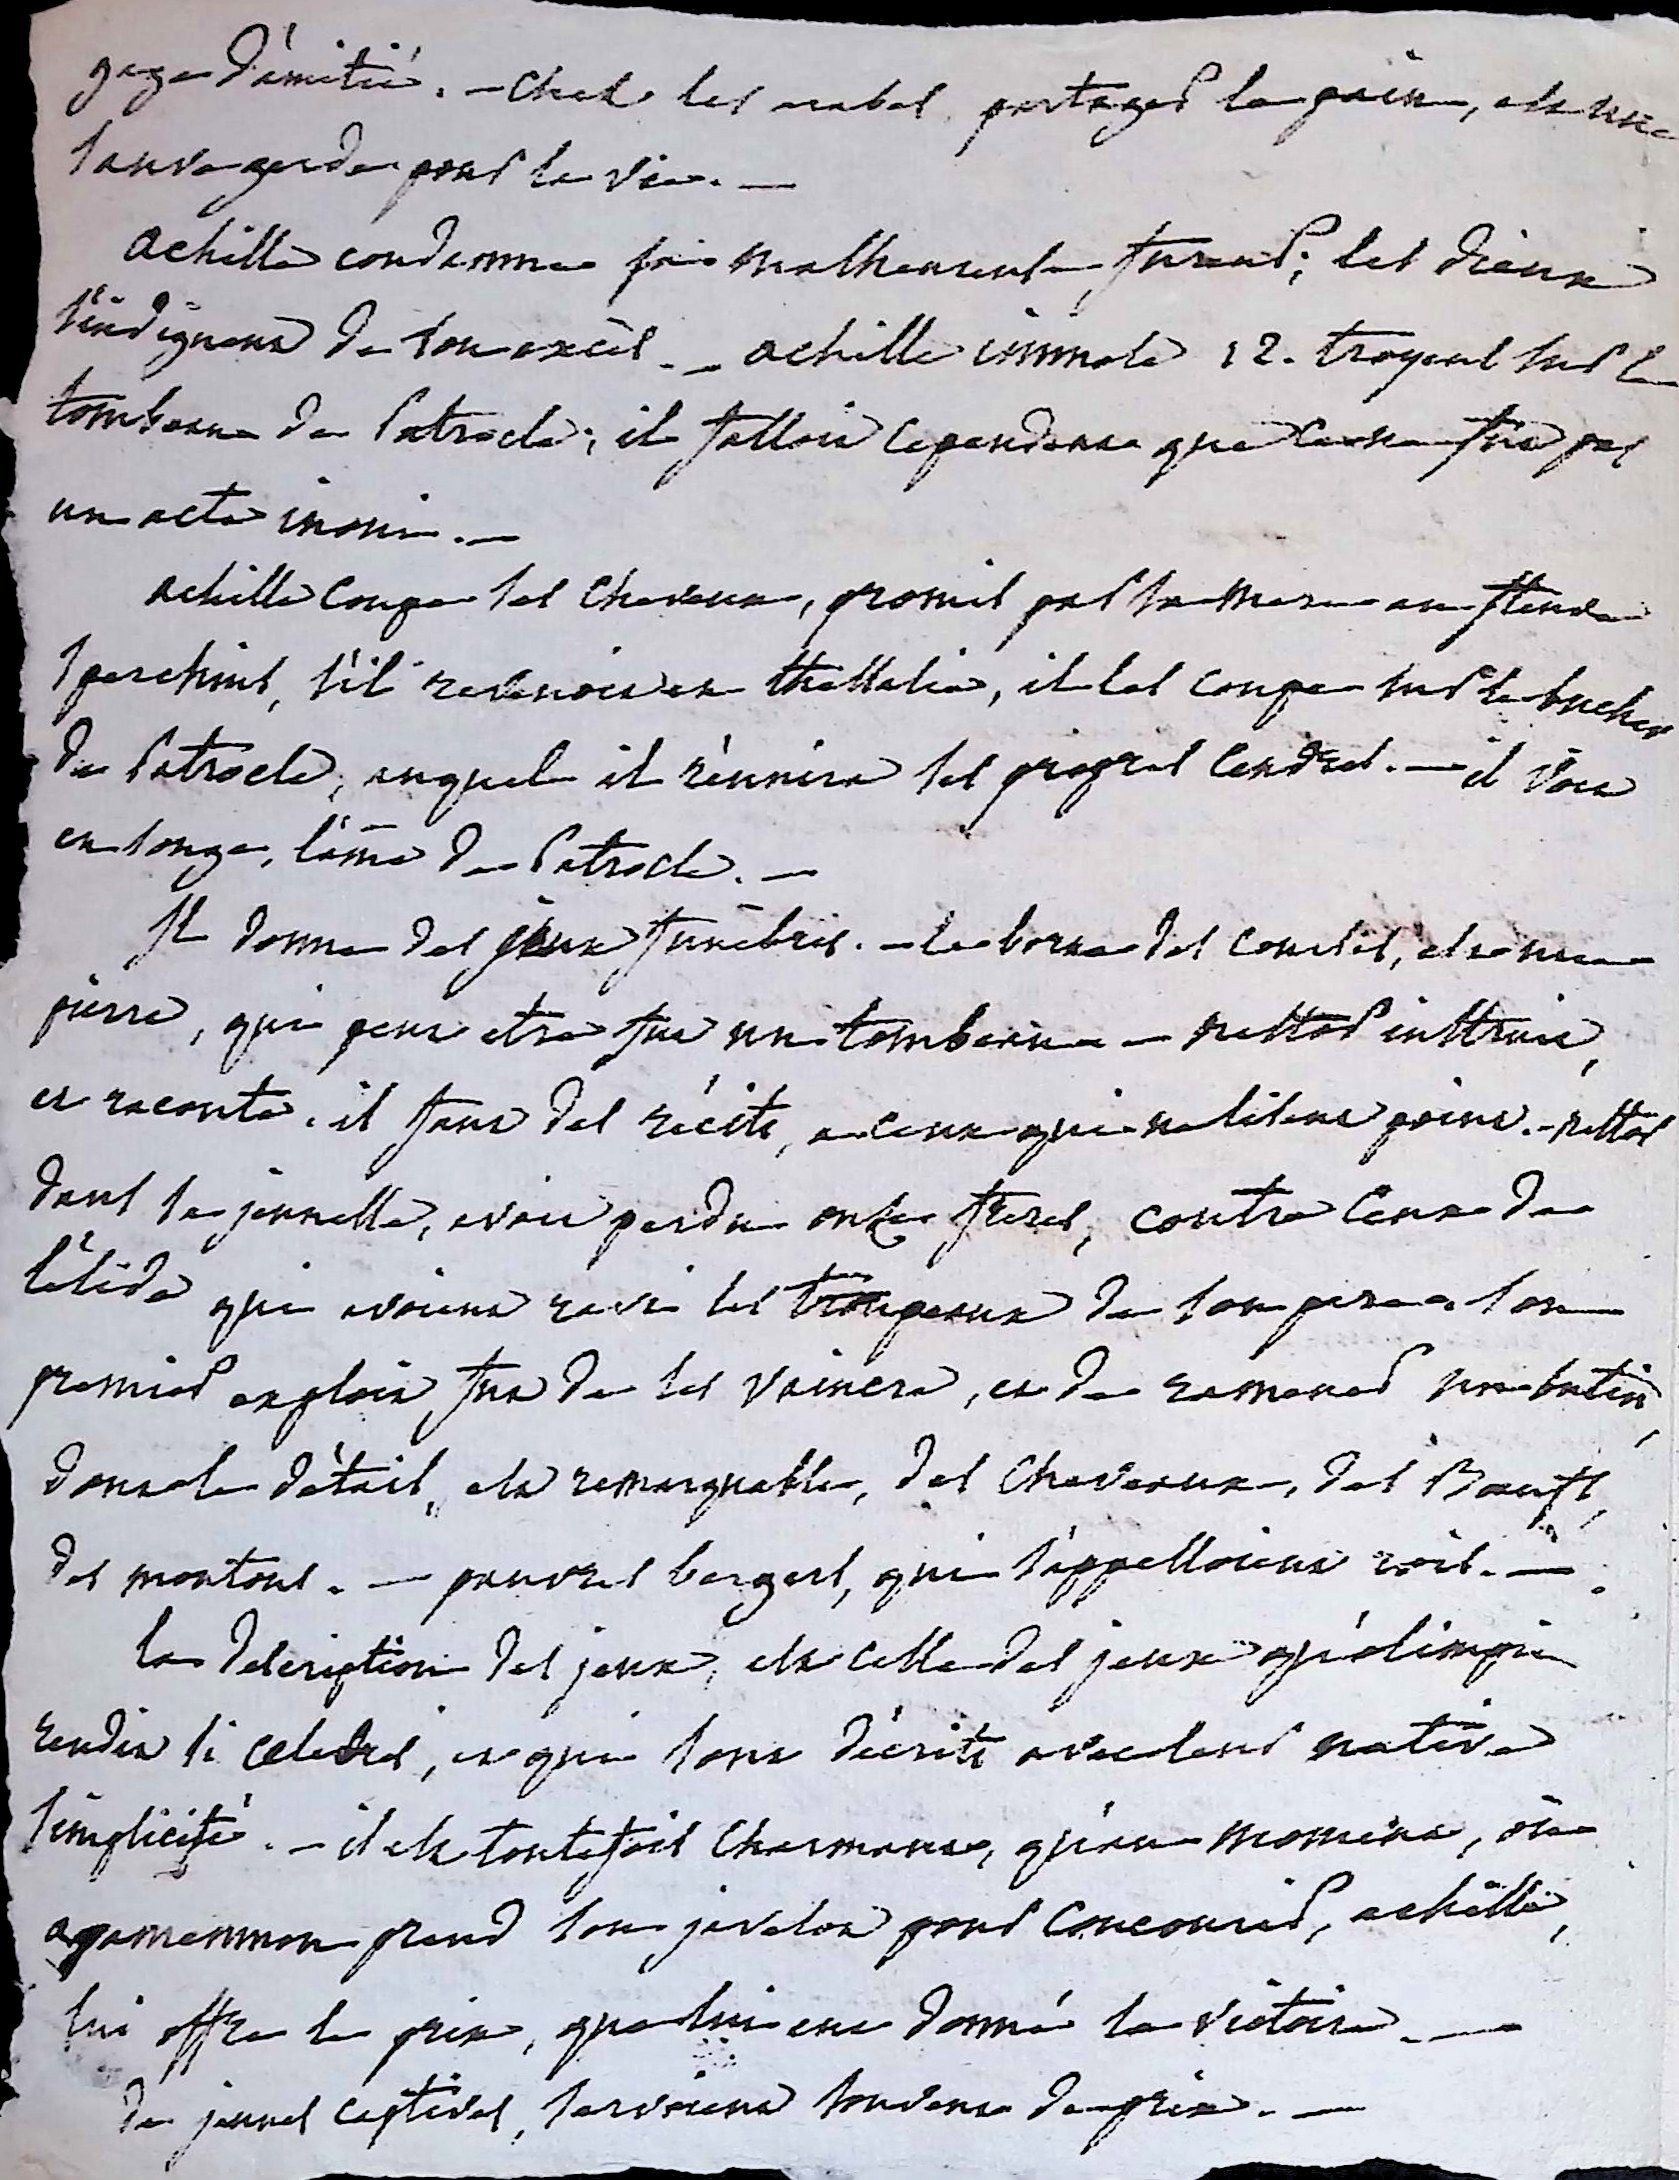 gage d'amitié. — Chez les arabes partager le pain, est une
sauvegarde pour la vie. —
achille condamne sa malheureuse fureur; les dieux
s'indignent de son excès. — achille immole 12. troyens sur le
tombeau de Patrocle; il falloit cependant que ce ne fut pas
un acte inoui. —
achille coupe ses cheveux, promis par sa mere au fleuve
Sperchius, s'il revenoit en thessalie, il les coupe sur le bucher
de Patrocle, auquel il réunira ses propres cendres. — il voit
en songe, l'âme de Patrocle. —
Il donne des jeux funèbres. — la borne des courses, est une
pierre, qui peut etre fut un tombeau — nestor instruit,
et raconte. il faut des récits, a ceux qui ne lisent point. — nestor
dans sa jeunesse, avoit perdu onze freres, contre ceux de
l'élide qui avoient ravi les troupeaux de son pere. son
premier exploit fut de les vaincre, et de ramener un butin,
dont le détail, est remarquable, des chevaux, des Boeufs,
des moutons. — pauvres bergers, qui s'appelloient rois. —
la description des jeux, est celle des jeux qu'olimpie
rendit si celebres, et qui sont décrits avec leur native
simplicité. — il est toutefois charmant, qu'au moment, où
agamemnon prend son javelot pour concourir, achille,
lui offre le prix, que lui eut donné la victoire. —
de jeunes captives, servoient souvent de prix. —